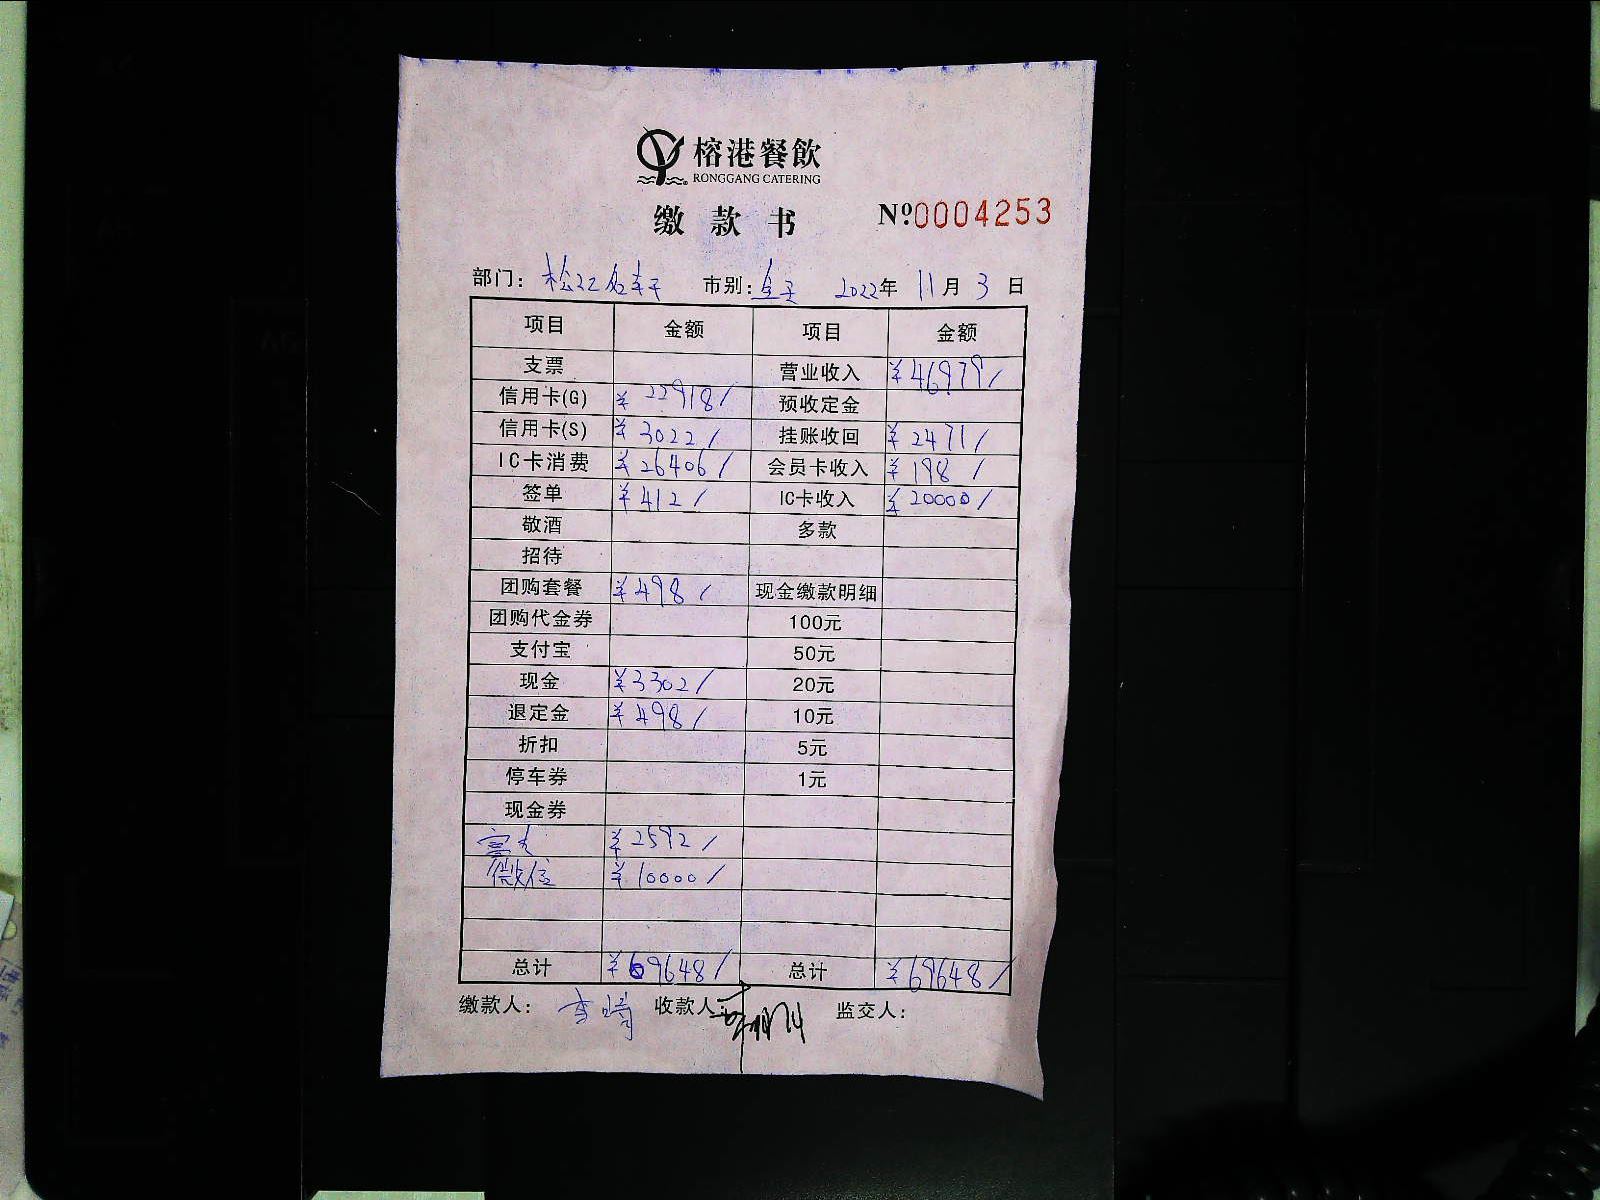 榕港餐飲
RONGGANG CATERING
缴款书 №0004253
部门：松江名轩 市别： 2022年 11月 3日
项目 金额 项目 金额
支票 营业收入 ¥46979/
信用卡(G) ¥22918/ 预收定金
信用卡(S) ¥3022/ 挂账收回 ¥2471/
IC卡消费 ¥26406/ 会员卡收入 ¥198/
签单 ¥412/ IC卡收入 ¥20000/
敬酒 多款
招待
团购套餐 ¥498/ 现金缴款明细
团购代金券 100元
支付宝 50元
现金 ¥3302/ 20元
退定金 ¥498/ 10元
折扣 5元
停车券 1元
现金券
¥2592/
微信 ¥10000/
总计 ¥69648/ 总计 ¥69648/
缴款人： 收款人： 监交人：